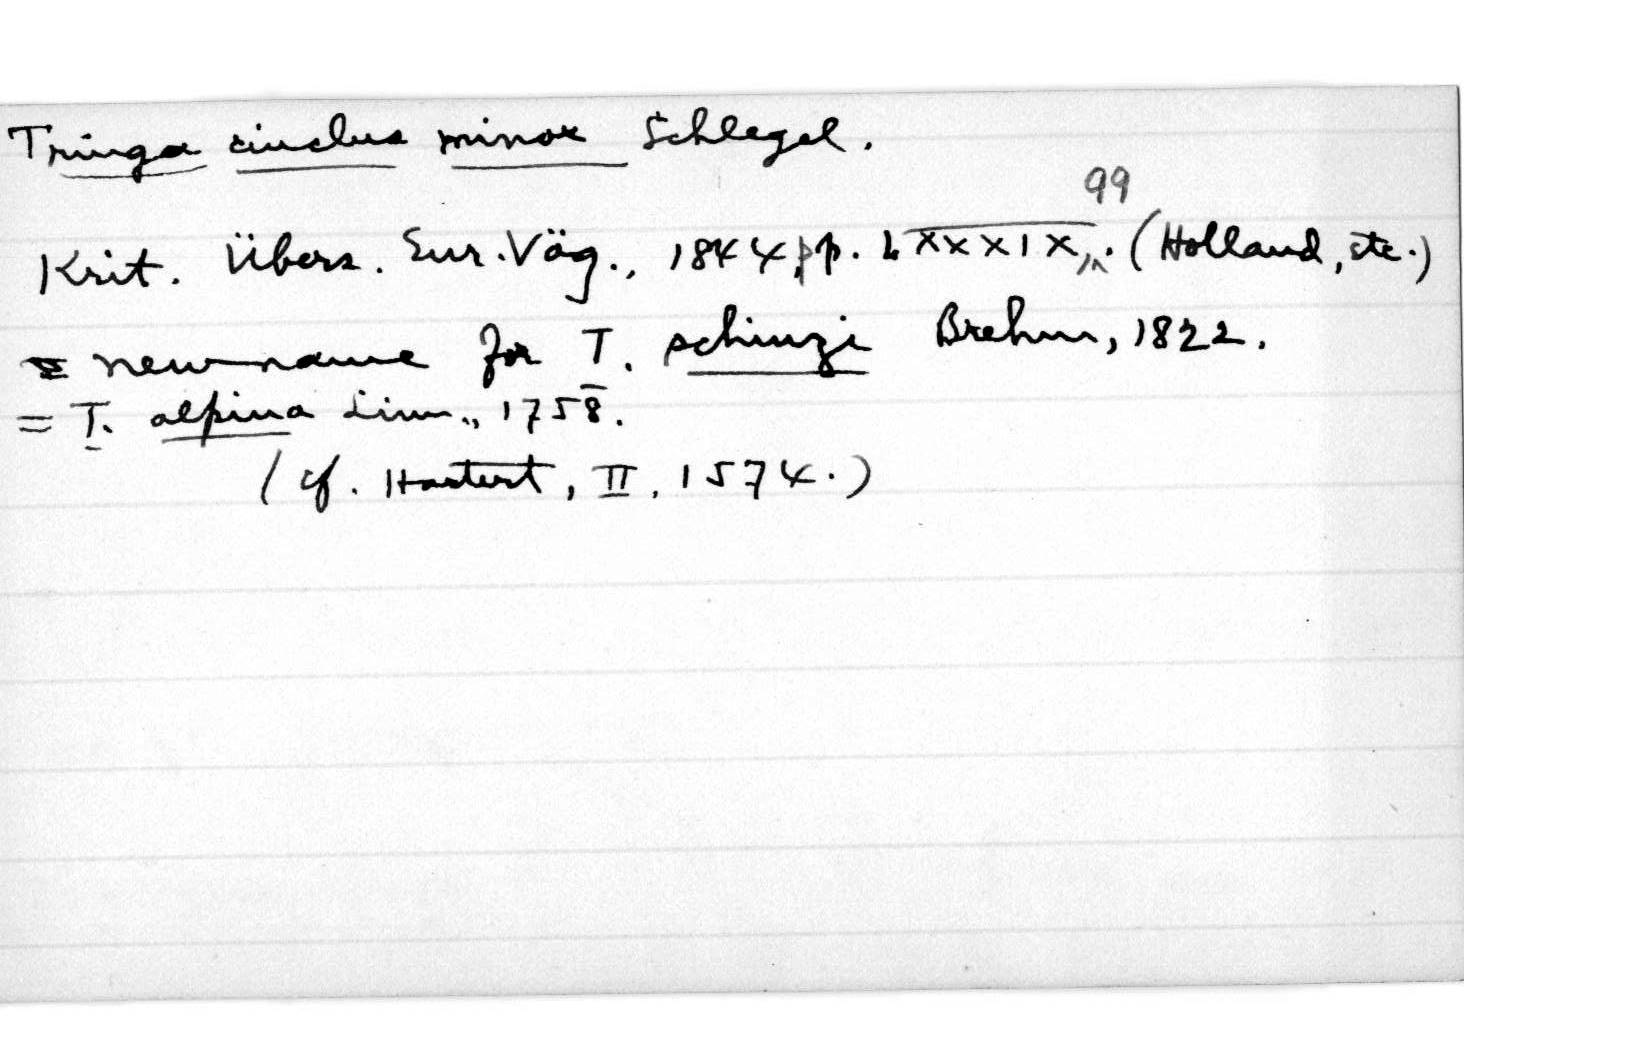 Tringa cinclus minor Schlegel.
Krit. Übers. Eur. Vög., 1844, pp. LXXXIX, 99. (Holland, etc.)
= new name for T. schinzi Brehm, 1822.
= T. alpina Linn., 1758.
(cf. Hartert, II, 1574.)